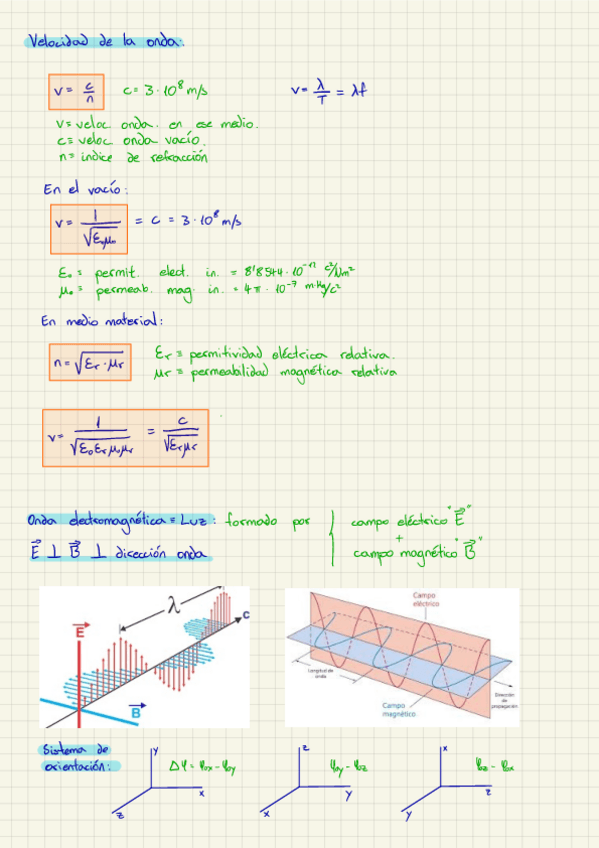 Velocidad de la onda:
v = c/n   c = 3·10⁸ m/s   v = λ/T = λf
v ≡ veloc onda. en ese medio.
c ≡ veloc onda vacío.
n ≡ indice de refracción
En el vacío:
v = 1/√(ε₀μ₀) = c = 3·10⁸ m/s
ε₀ ≡ permit. elect. in. = 8'8544·10⁻¹² C²/Nm²
μ₀ ≡ permeab. mag. in. = 4π·10⁻⁷ m·Kg/C²
En medio material:
n = √(εr·μr)   εr ≡ permitividad eléctrica relativa.
μr ≡ permeabilidad magnética relativa
v = 1/√(ε₀εrμ₀μr) = c/√(εrμr)
Onda electromagnética ≡ Luz: formado por { campo eléctrico "E⃗"
+
E⃗ ⊥ B⃗ ⊥ dirección onda   campo magnético "B⃗"
λ
C
E⃗
B⃗
Campo eléctrico
Longitud de onda
Campo magnético
Dirección de propagación
Sistema de orientación:
y x z   Δφ = φox - φoy
z y x   φoy - φoz
x z y   φoz - φox